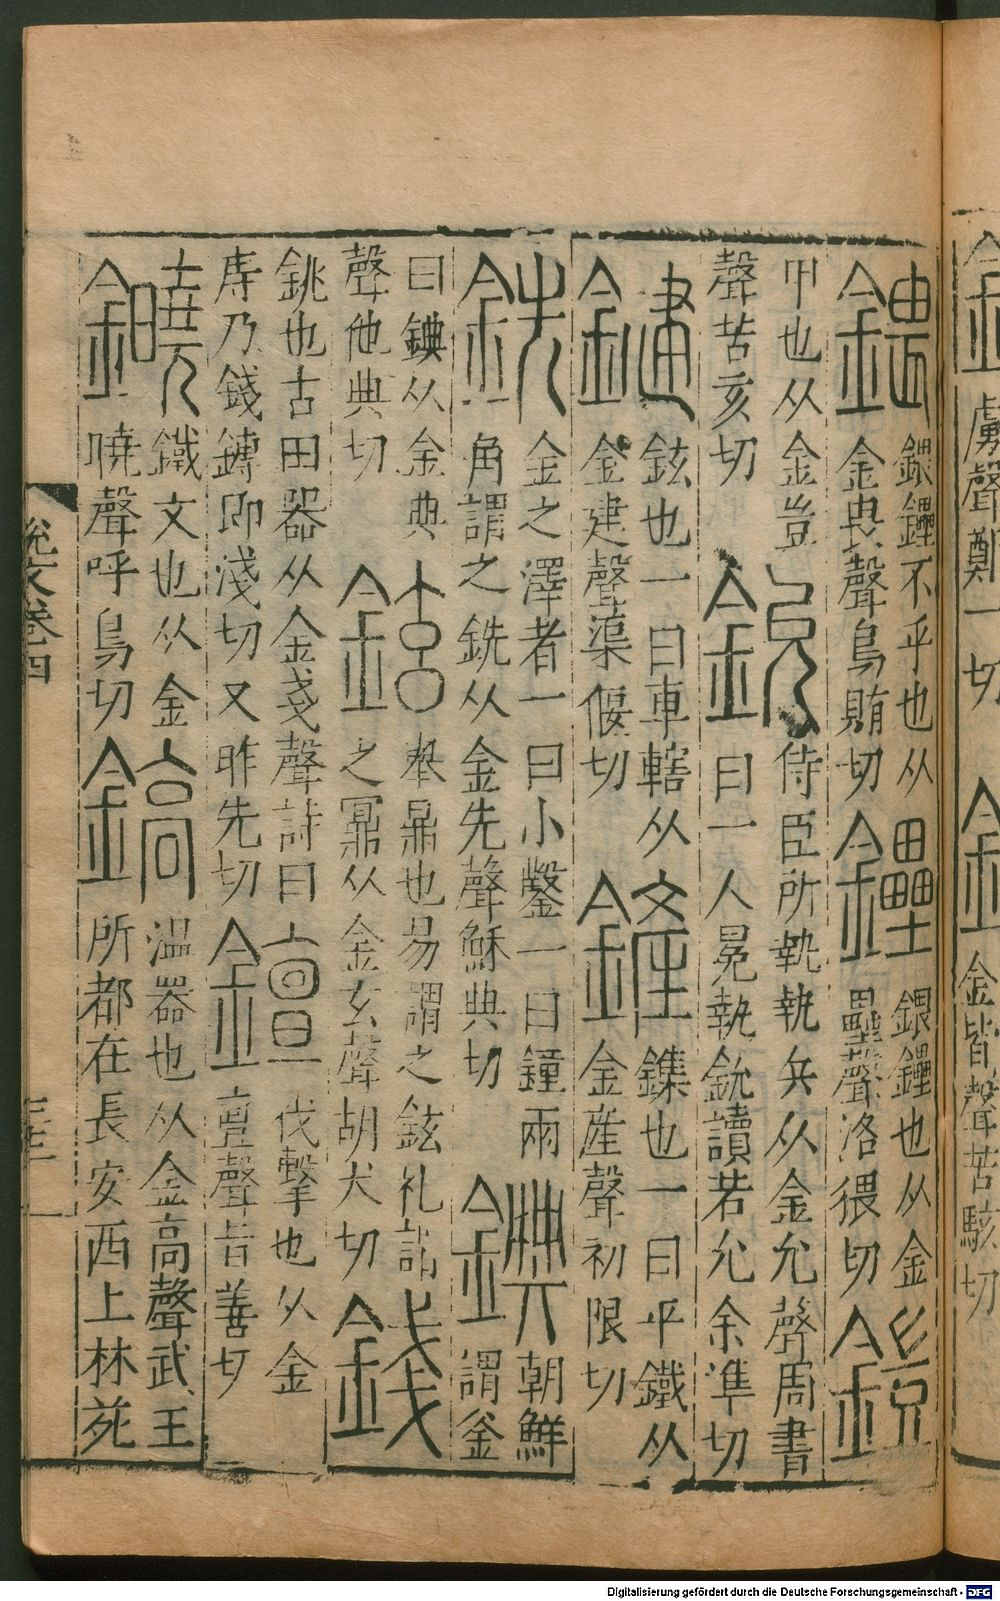 虜聲鄭一切
金皆聲苦駭切
鍡
鍡鑸不乎也从
金畏聲烏賄切
鑸
鍡鑸也从金
壘聲洛猥切
鎧
甲也从金豈
聲苦亥切
鈗
侍臣所執執兵从金允聲周書
曰一人冕執鈗讀若允余準切
鍵
鉉也一曰車轄从
金建聲渠偃切
鏟
鏶也一曰平鐵从
金產聲初限切
銑
金之澤者一曰小鑿一曰鐘兩
角謂之銑从金先聲穌典切
錪
朝鮮
謂釜
曰錪从金典
聲他典切
鉉
舉鼎也易謂之鉉礼謂
之鼏从金玄聲胡犬切
錢
銚也古田器从金戔聲詩曰
庤乃錢鎛即淺切又昨先切
伐擊也从金
亶聲旨善切
鐵文也从金
曉聲呼鳥切
鎬
溫器也从金高聲武王
所都在長安西上林苑
說文卷四
Digitalisierung gefördert durch die Deutsche Forschungsgemeinschaft - DFG